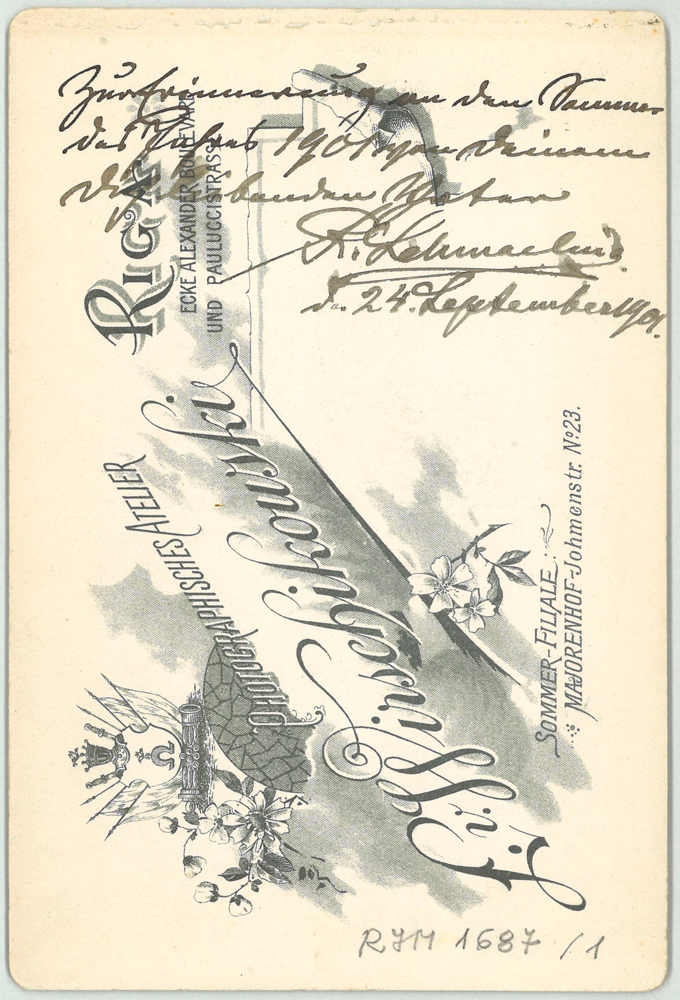 Zur Erinnerung an den Sommer
des Jahres 1901 von Deinem
Dich liebenden Vater
d. 24. September 1901.
RIGA
ECKE ALEXANDER BOULEVARD
UND PAULUCCISTRASSE
PHOTOGRAPHISCHES ATELIER
SOMMER-FILIALE:
MAJORENHOF-Johmenstr. № 23.
RJM 1687 / 1